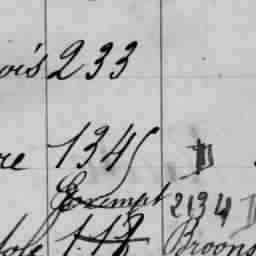 ois 233
re 1345 D
Exempt 2134 D
tole 1.18 Broons